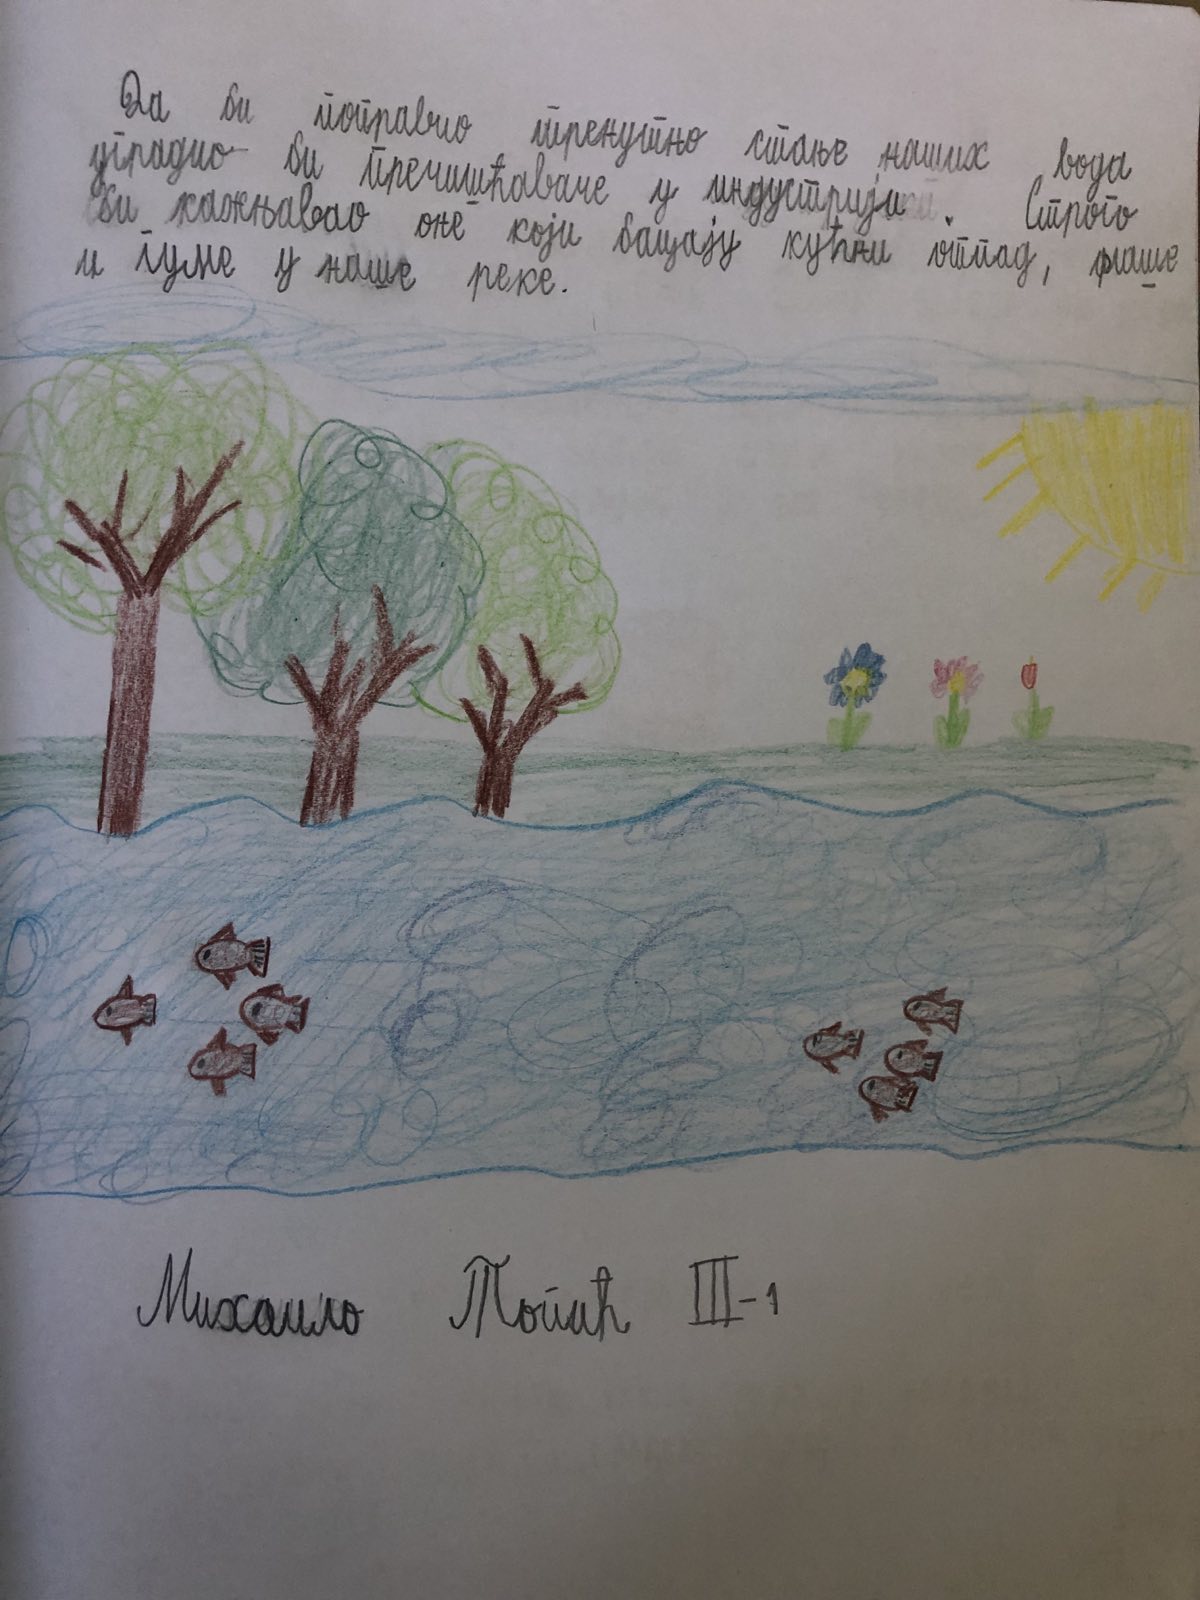 Да би поправио тренутно стање наших вода
уградио би пречишћаваче у индустрији. Строго
би кажњавао оне који бацају кућни отпад, флаше
и гуме у наше реке.
Михаило Топић III-1